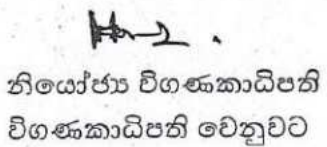 නියෝජ්‍ය විගණකාධිපති
විගණකාධිපති වෙනුවට